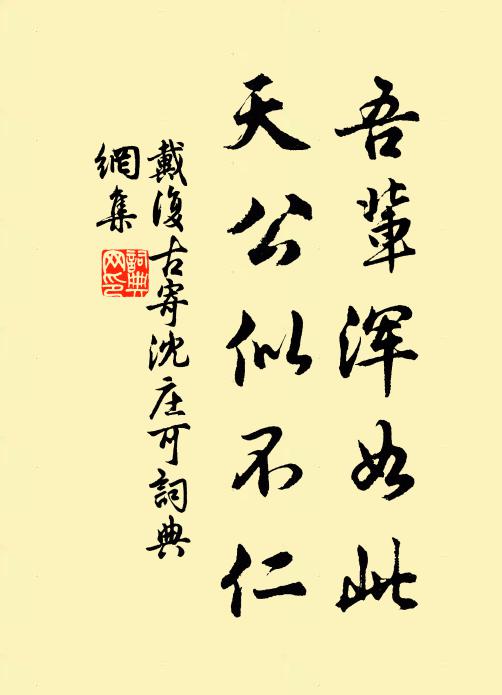 吾輩渾如此
天公似不仁
戴復古寄沈庄可詞典
網集
詞典
网印